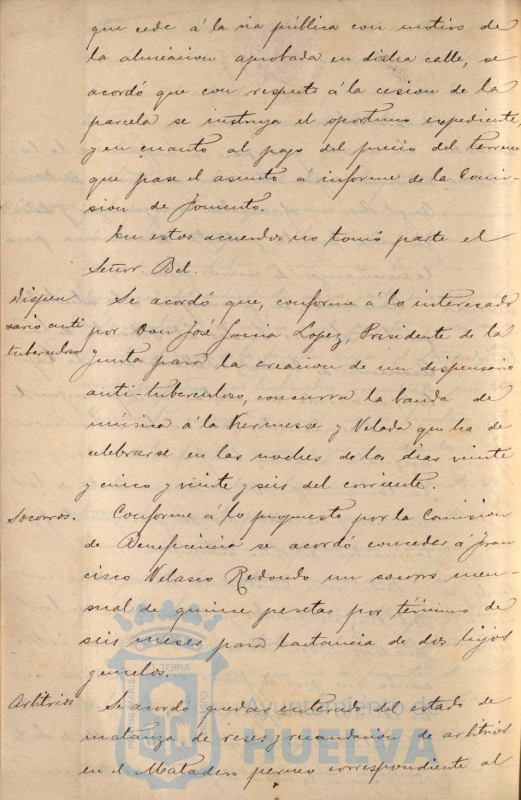 que cede á la via pública con motivo de
la alineacion aprobada en dicha calle, se
acordó que con respecto á la cesion de la
parcela se instruya el oportuno expediente,
y en cuanto al pago del precio del terreno
que pase el asunto á informe de la Comi-
sion de Fomento.
En estos acuerdos no tomó parte el
Señor Bel.
Dispen
sario anti
tuberculoso
Se acordó que, conforme á lo interesado
por Don José Garcia Lopez, Presidente de la
Junta para la creacion de un dispensario
anti-tuberculoso, concurra la banda de
música á la Kermesse y Velada que ha de
celebrarse en las noches de los dias veinte
y cinco y veinte y seis del corriente.
Socorros.
Conforme á lo propuesto por la Comision
de Beneficencia se acordó conceder á Fran
cisco Velasco Redondo un socorro men-
sual de quince pesetas por término de
seis meses para lactancia de dos hijos
gemelos.
Arbitrios
Se acordó quedar enterado del estado de
matanza de reses y recaudacion de arbitrios
en el Matadero perneo correspondiente al
Ayuntamiento de
HUELVA